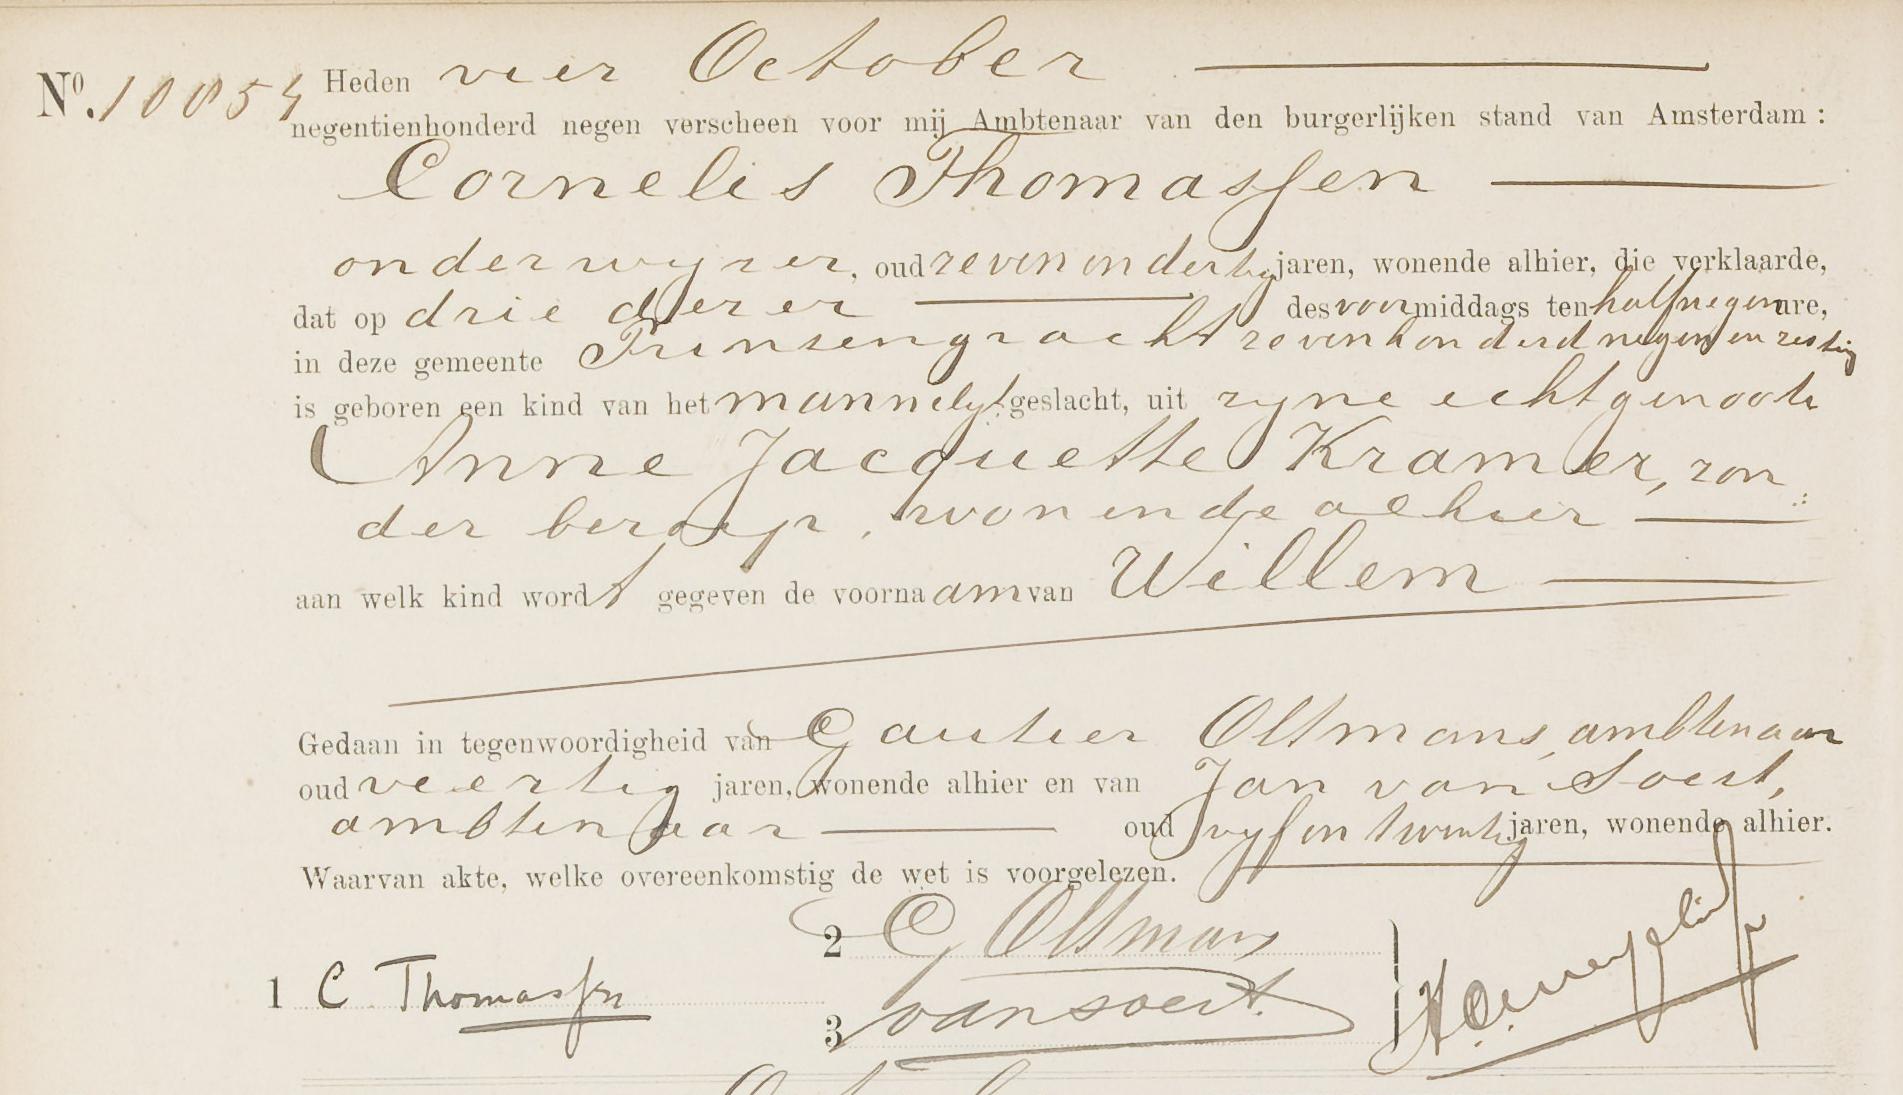 No. 10054 Heden vier October
negentienhonderd negen verscheen voor mij Ambtenaar van den burgerlijken stand van Amsterdam:
Cornelis Thomassen
onderwyzer, oud zeven en dertig jaren, wonende alhier, die verklaarde,
dat op drie dezer des voormiddags ten half negen ure,
in deze gemeente Prinsengracht zevenhonderd negen en zestig
is geboren een kind van het mannelyk geslacht, uit zyne echtgenoote
Anne Jacquette Kramer, zon
der beroep, wonende alhier
aan welk kind wordt gegeven de voornaam van Willem
Gedaan in tegenwoordigheid van Gautier Oltmans, ambtenaar
oud veertig jaren, wonende alhier en van Jan van Soest,
ambtenaar oud vyf en twintig jaren, wonende alhier.
Waarvan akte, welke overeenkomstig de wet is voorgelezen.
2 G Oltmans
1 C Thomassen
3 van Soest.